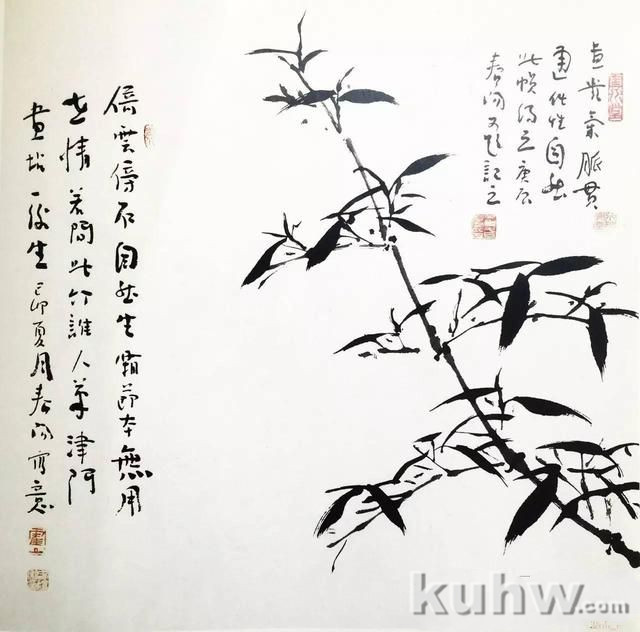 畫貴氣脈貫
通化性自然
此幀得之庚辰
春又題記之
倚雲傍石自然生霜節本無用
世情若問此竹誰人筆津門
畫壇一後生己卯夏月春寫意
kuhw.com